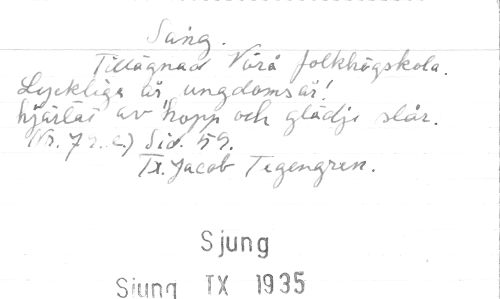 Sång.
Tillägnad Vörå folkhögskola.
Lyckliga är ungdomsår!
hjärtat av hopp och glädje slår.
(Nr. 7 r. c.) Sid. 59.
Tx. Jacob Tegengren.
Sjung
Sjung TX 1935